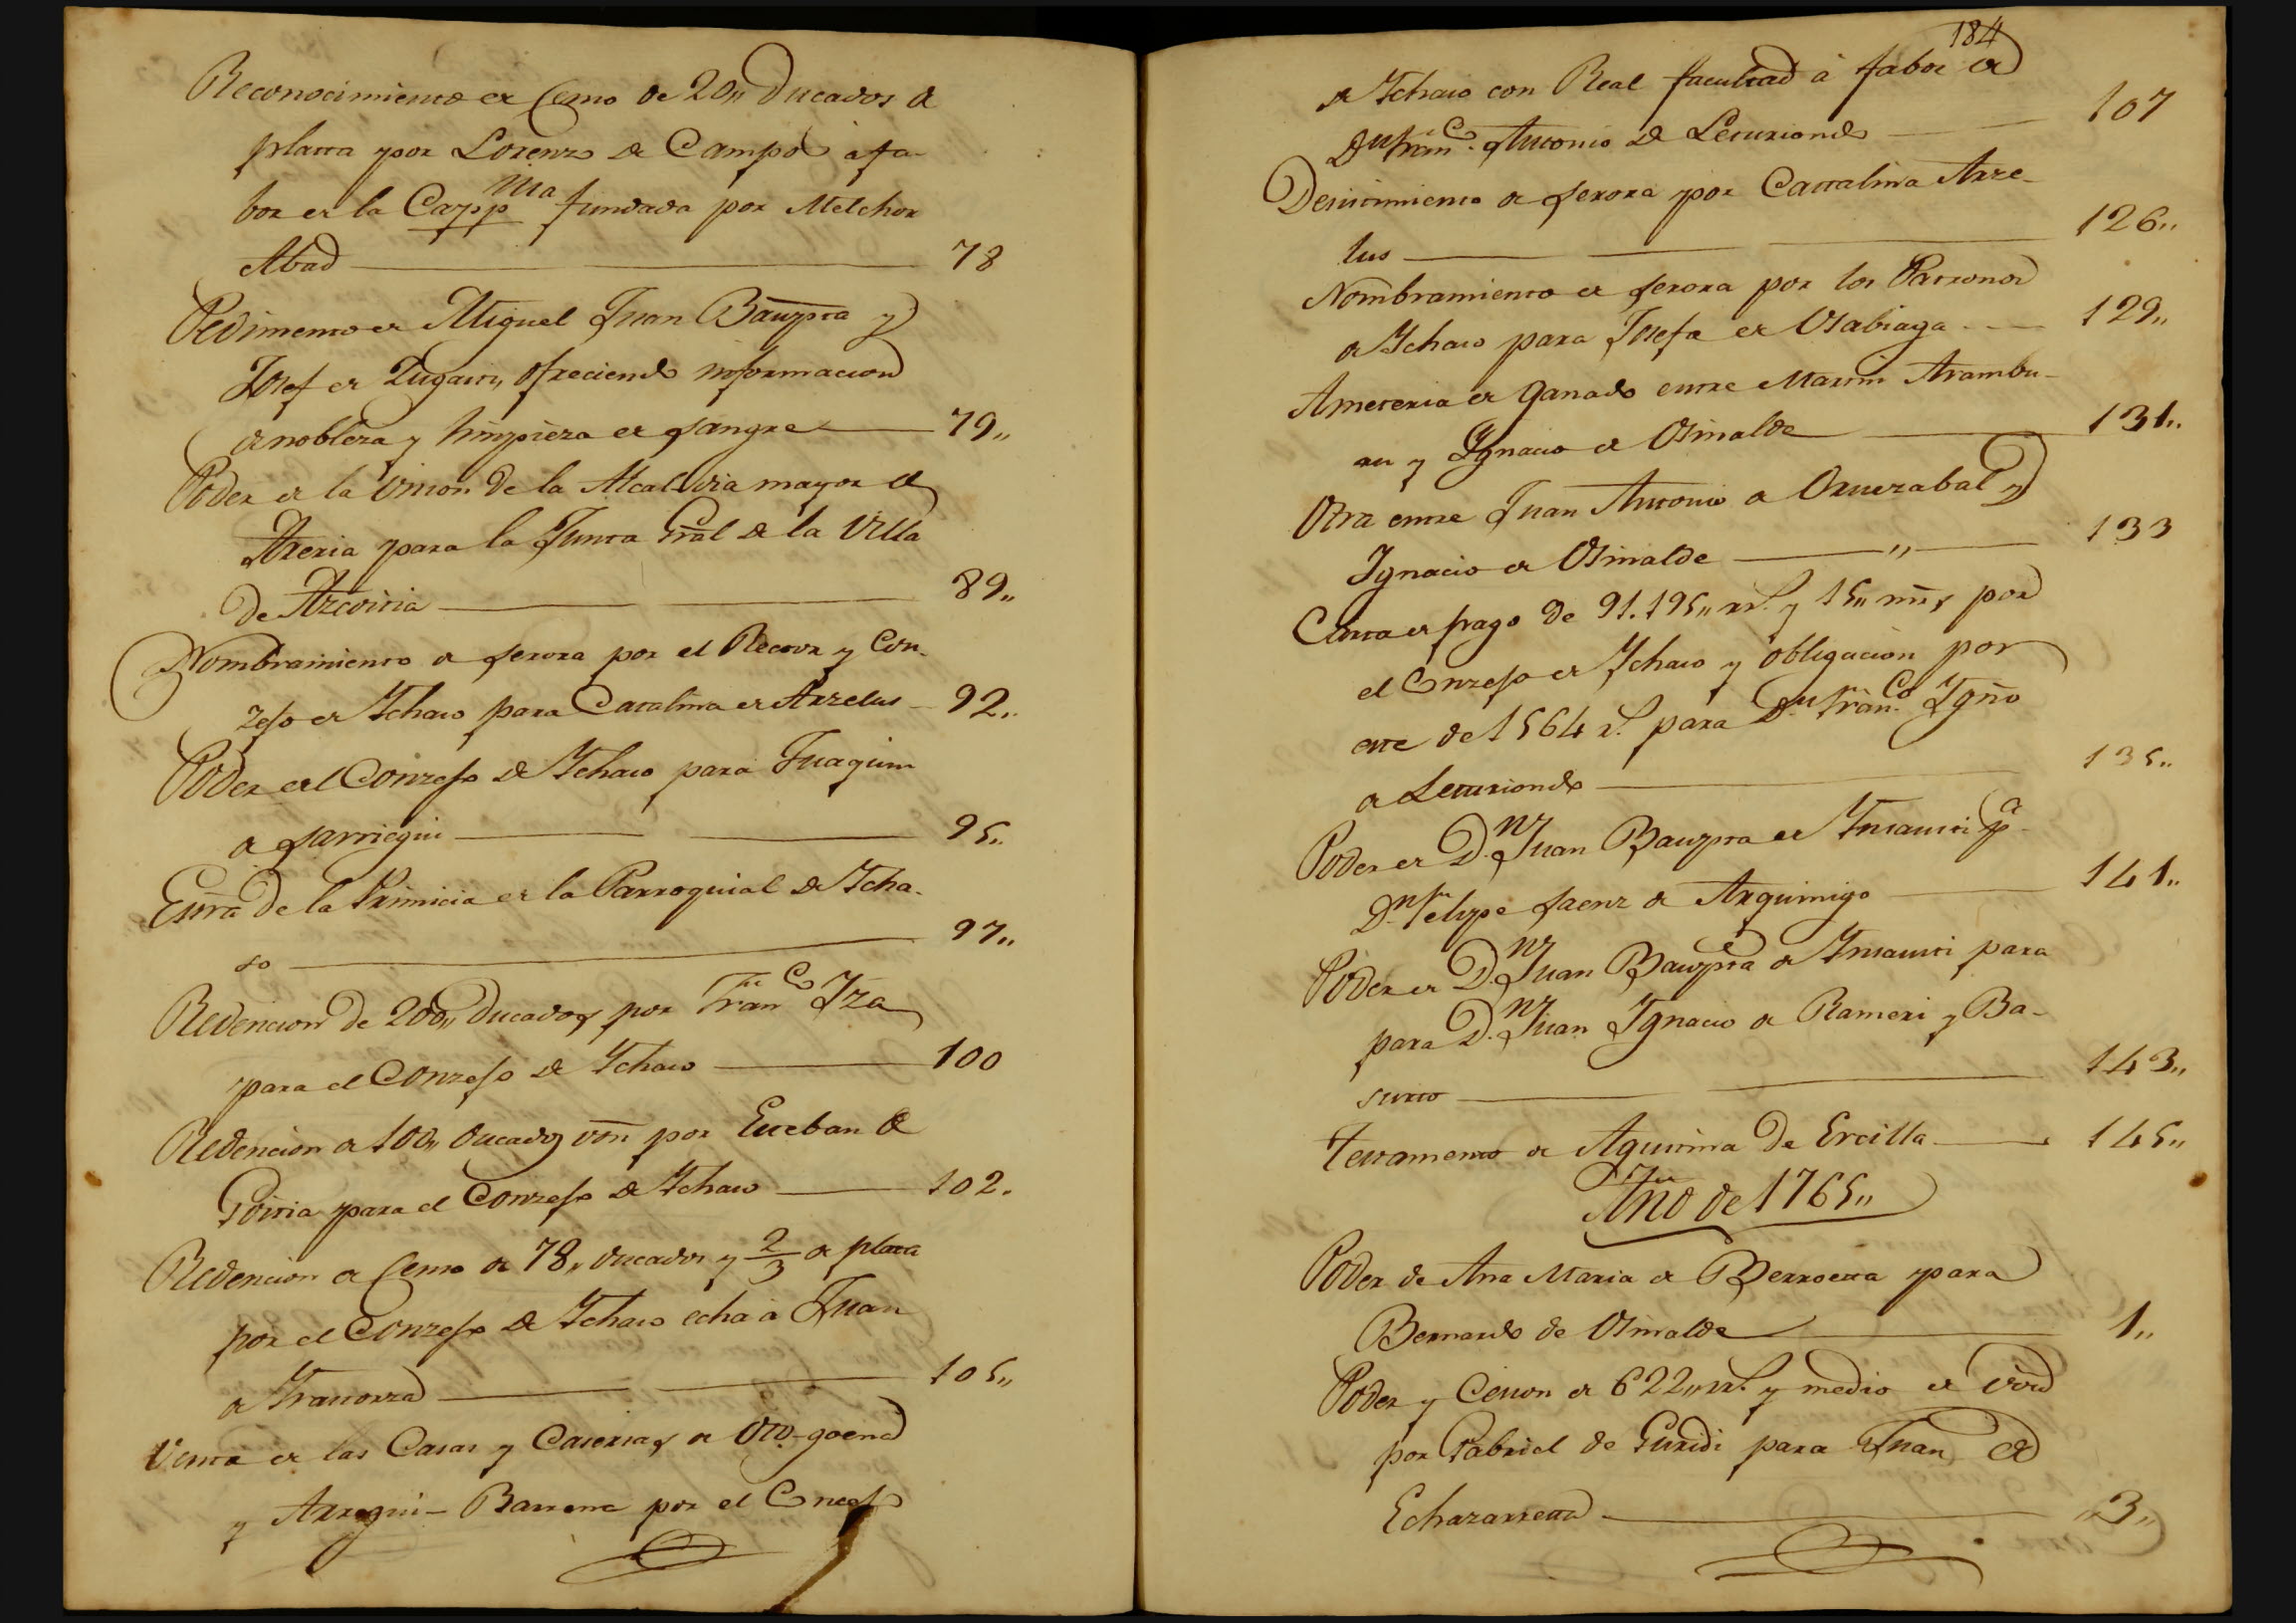 Reconocimiento de Censo de 20,, Ducados de
platta por Lorenzo de Campo à fa-
bor de la Capp.nia fundada por Melchor
Abad 78
Pedimento de Miguel Juan Baup.ta y
Josef de Dugarri, ofreciendo informacion
de nobleza y limpieza de sangre 79,,
Poder de la Union de la Alcaldia mayor de
Areria para la Junta Gral de la Villa
de Azcoitia 89,,
Nombramiento de serora por el Rector y Con-
zejo de Ichaso para Catalina de Arzelus 92,,
Poder del Conzejo de Ichaso para Juaquin
de Sarriegui 95,,
Esñra de la Primicia de la Parroquial de Icha-
so 97,,
Redencion de 200,, Ducados por Fran.co Iza
para el Conzejo de Ichaso 100
Redencion de 100,, ducados vòn por Esteban de
Goitia para el Conzejo de Ichaso 102.
Redencion de Censo de 78,, ducados y 2/3 de plata
por el Conzejo de Ichaso echa à Juan
de Iraeta 105,,
Venta de las Casas y Caserias de Oto-goena
y Arregui-Barrena por el Concejo
184
de Ichaso con Real facultad à fabor de
D.n Fran.co Antonio de Lecuriondo 107
Desistimiento de serora por Cattalina Arze-
lus 126,,
Nombramiento de serora por los Patronos
de Ichaso para Josefa de Usabiaga 129,,
Ameteria de Ganado entre Martin Arambu-
ru y Ygnacio de Osinalde 131,,
Otra entre Juan Antonio de Oruezabal y
Ignacio de Osinalde 133
Carta de pago de 91.195,, rr.s y 15,, mrs por
el Conzejo de Ichaso y obligacion por
este de 1564 r.s para D.n Fran.co Ygño
de Lecuriondo 135,,
Poder de D.n Juan Baupta de Insausti p.a
D.n Felipe Saenz de Arquinigo 141,,
Poder de D.n Juan Baupta de Insausti para
para D.n Juan Ignacio de Rameri y Ba-
surto 143,,
Testamento de Agustina de Ercilla 145,,
Año de 1765,,
Poder de Ana Maria de Berroeta para
Bernardo de Osinalde 1,,
Poder y Cesion de 622,, rr.s y medio de von
por Gabriel de Guridi para Juan de
Echazarreta 3,,